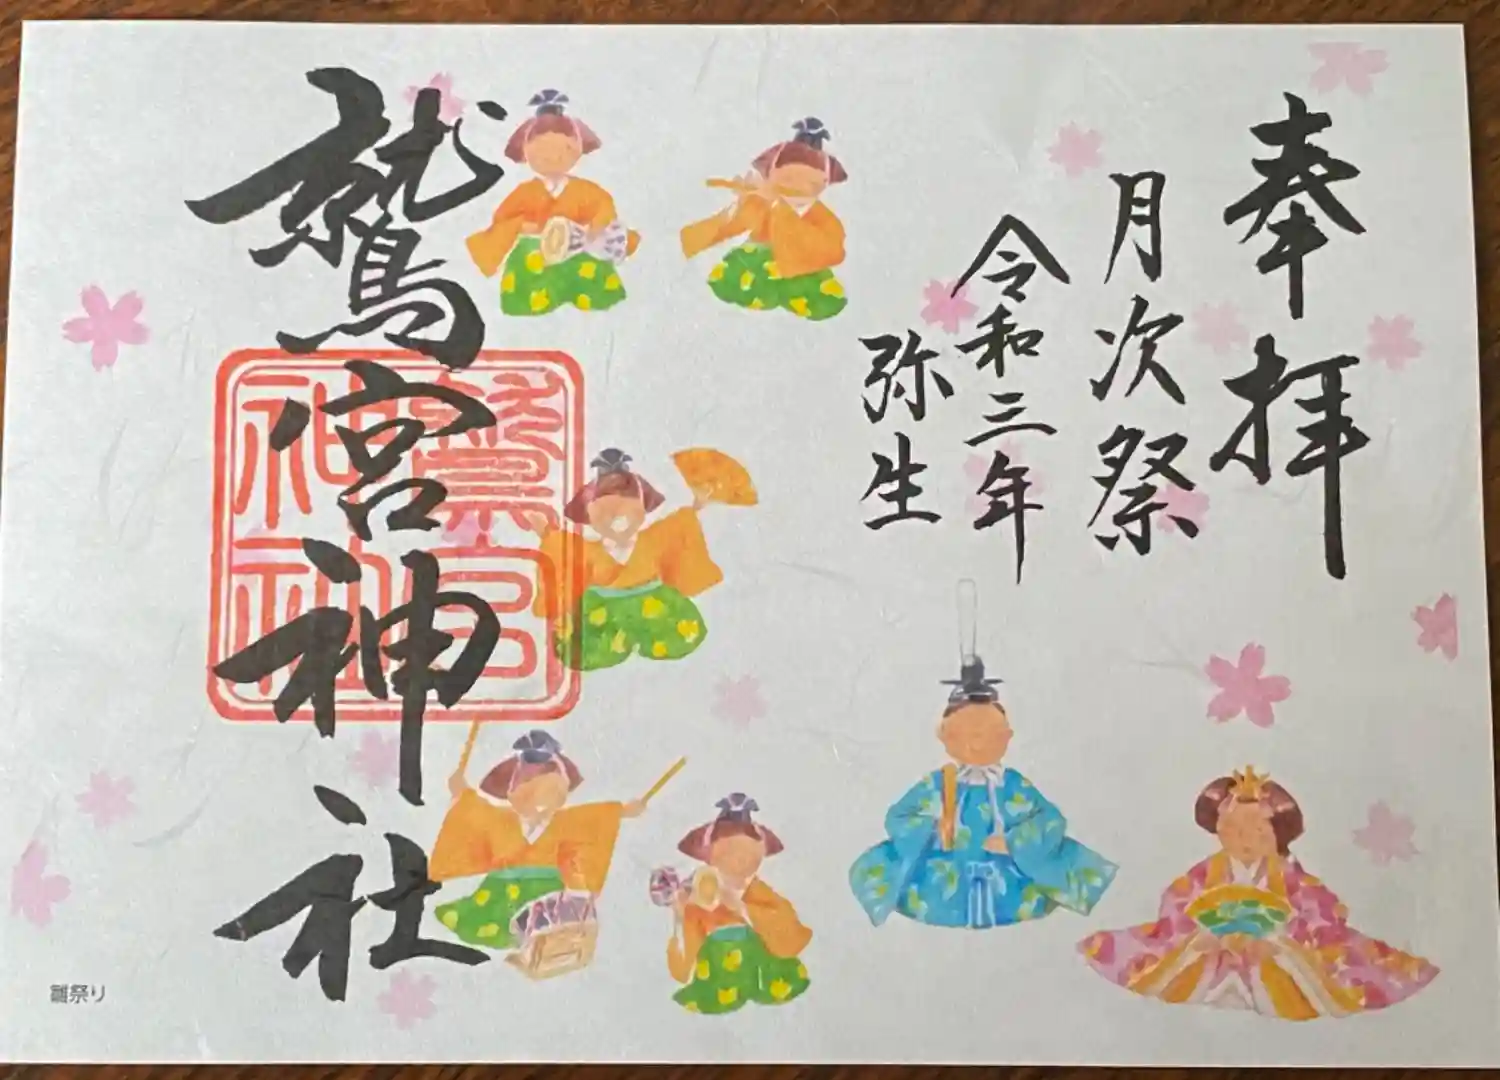 奉拝
月次祭
令和三年
弥生
鷲宮神社
鷲宮
神社
雛祭り